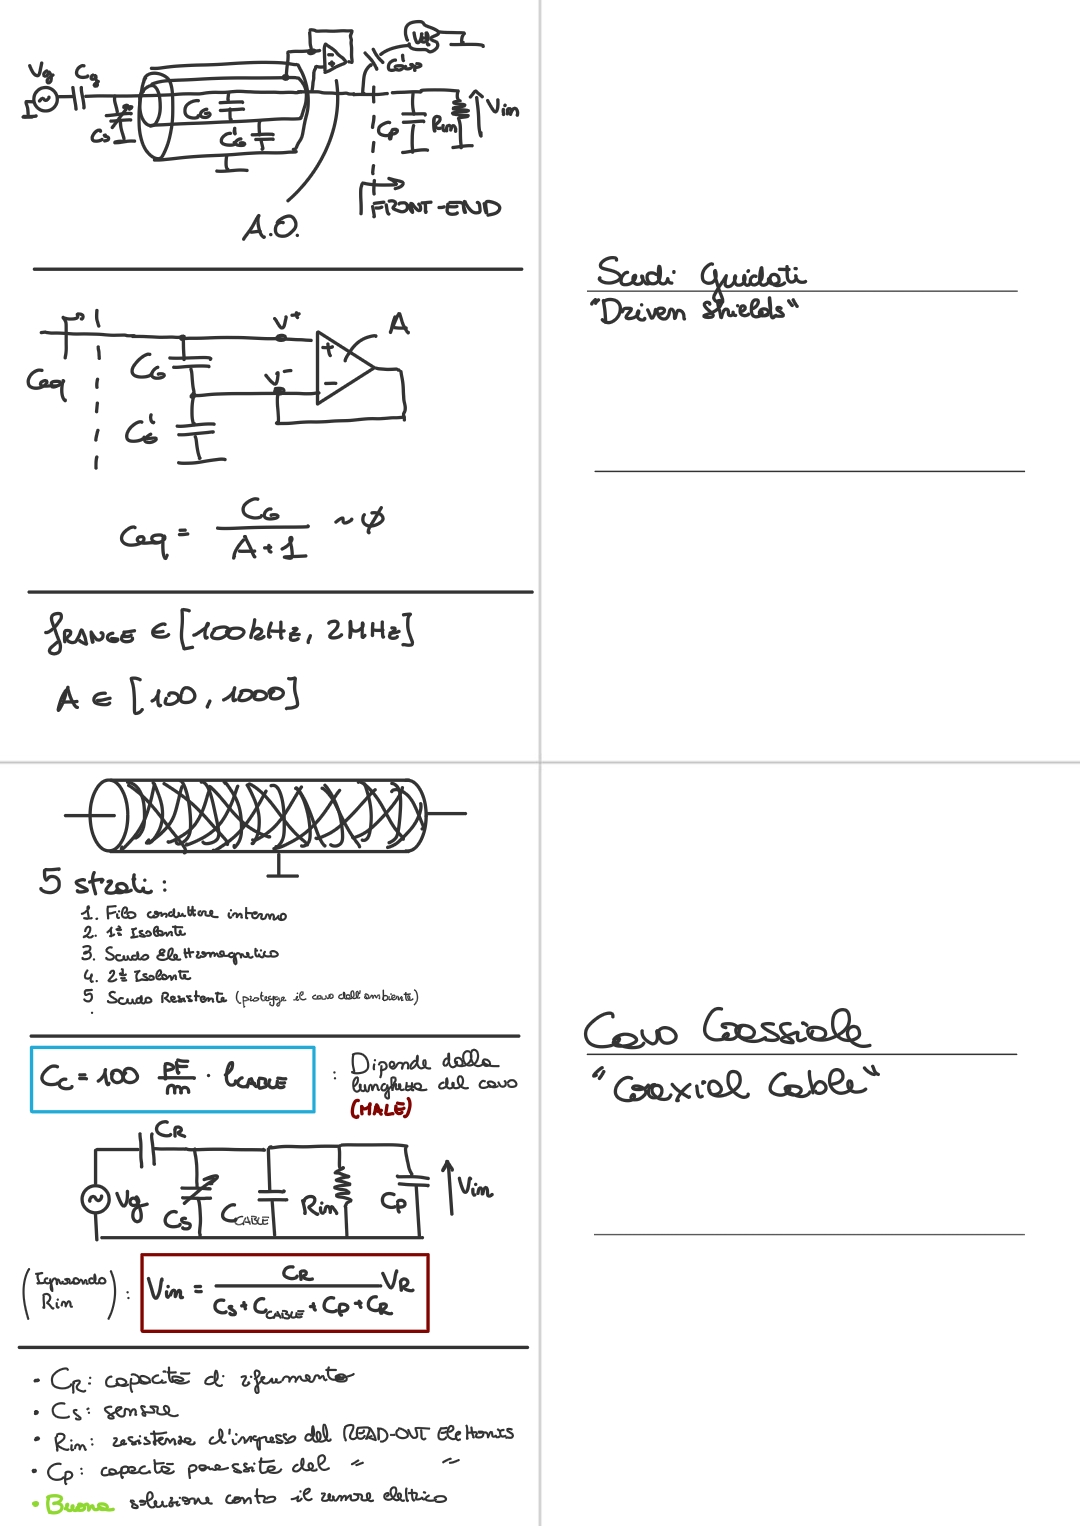 Vg
Cg
Cs
CG
C'G
Vd
C'coup
Cp
Rin
Vin
A.O.
FRONT-END
Scudi Guidati
"Driven Shields"
Ceq
CG
C'G
V+
V-
A
Ceq = CG / (A+1) ~ φ
fRANGE ∈ [100kHz, 2MHz]
A ∈ [100, 1000]
5 strati:
1. Filo conduttore interno
2. 1° Isolante
3. Scudo Elettromagnetico
4. 2° Isolante
5. Scudo Resistente (protegge il cavo dall'ambiente)
Cc = 100 pF/m · lCABLE : Dipende dalla
lunghezza del cavo
(MALE)
Cavo Coassiale
"Coaxial Cable"
CR
Vg
Cs
CCABLE
Rin
Cp
Vin
(Ignorando Rin) : Vin = CR / (Cs + CCABLE + Cp + CR) VR
• CR: capacità di riferimento
• Cs: sensore
• Rin: resistenza d'ingresso del READ-OUT Elettronics
• Cp: capacità parassita del " "
• Buona soluzione contro il rumore elettrico